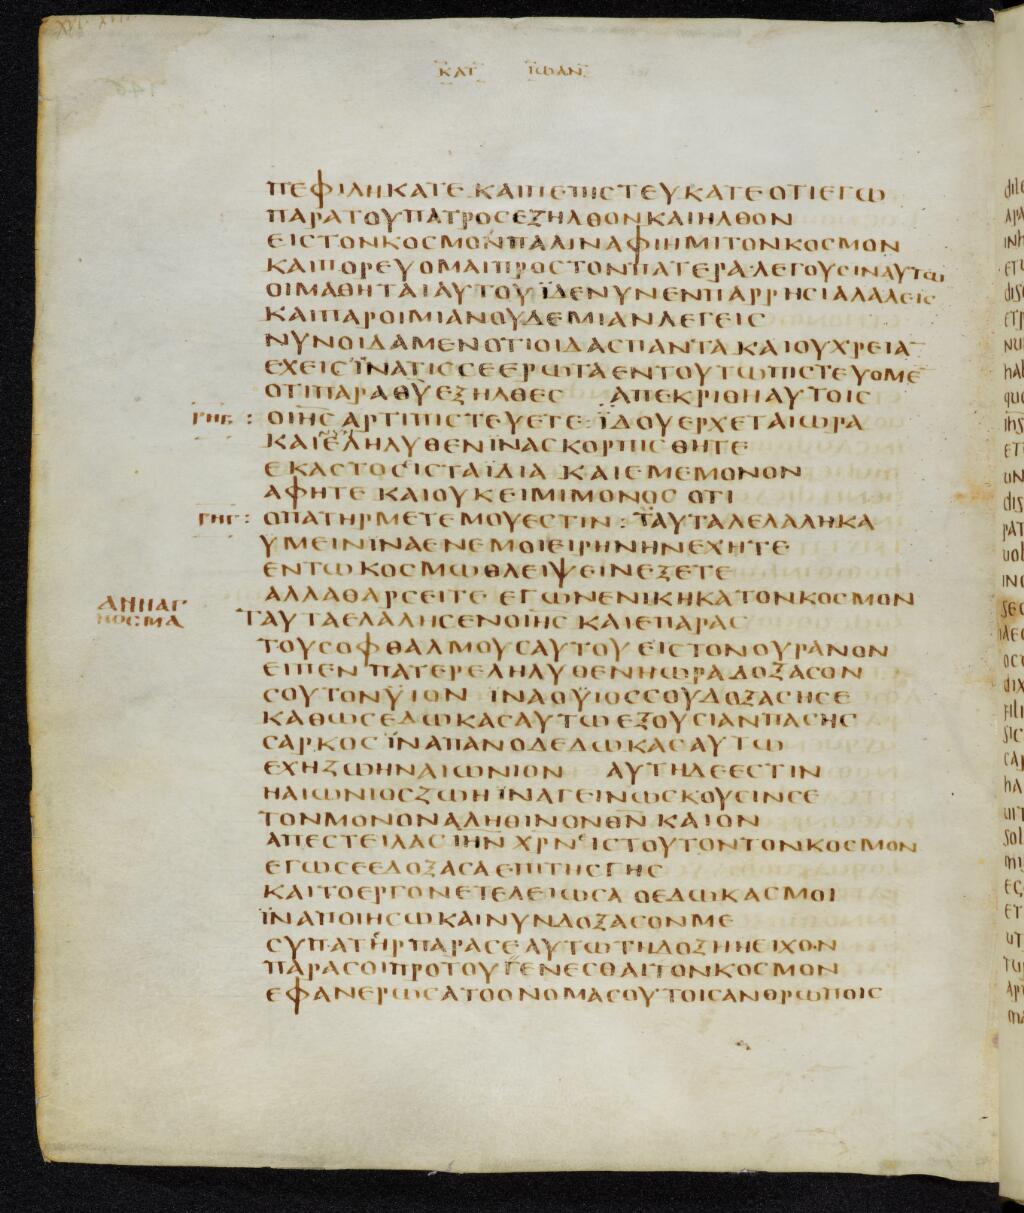 ΚΑΤ ΙΩΑΝ
ΠΕΦΙΛΗΚΑΤΕ ΚΑΙ ΠΕΠΙΣΤΕΥΚΑΤΕ ΟΤΙ ΕΓΩ
ΠΑΡΑ ΤΟΥ ΠΑΤΡΟΣ ΕΞΗΛΘΟΝ ΚΑΙ ΗΛΘΟΝ
ΕΙΣ ΤΟΝ ΚΟΣΜΟΝ ΠΑΛΙΝ ΑΦΙΗΜΙ ΤΟΝ ΚΟΣΜΟΝ
ΚΑΙ ΠΟΡΕΥΟΜΑΙ ΠΡΟΣ ΤΟΝ ΠΑΤΕΡΑ · ΛΕΓΟΥΣΙΝ ΑΥΤΩ
ΟΙ ΜΑΘΗΤΑΙ ΑΥΤΟΥ ΪΔΕ ΝΥΝ ΕΝ ΠΑΡΡΗΣΙΑ ΛΑΛΕΙΣ
ΚΑΙ ΠΑΡΟΙΜΙΑΝ ΟΥΔΕΜΙΑΝ ΛΕΓΕΙΣ
ΝΥΝ ΟΙΔΑΜΕΝ ΟΤΙ ΟΙΔΑΣ ΠΑΝΤΑ ΚΑΙ ΟΥ ΧΡΕΙΑ
ΕΧΕΙΣ ΪΝΑ ΤΙΣ ΣΕ ΕΡΩΤΑ ΕΝ ΤΟΥΤΩ ΠΙΣΤΕΥΟΜΕ
ΟΤΙ ΠΑΡΑ ΘΥ ΕΞΗΛΘΕΣ ΑΠΕΚΡΙΘΗ ΑΥΤΟΙΣ
ΡΜΕ : Ο ΙΗΣ ΑΡΤΙ ΠΙΣΤΕΥΕΤΕ : ΪΔΟΥ ΕΡΧΕΤΑΙ ΩΡΑ
ΚΑΙ ΕΛΗΛΥΘΕΝ ΪΝΑ ΣΚΟΡΠΙΣΘΗΤΕ
ΕΚΑΣΤΟΣ ΕΙΣ ΤΑ ΪΔΙΑ ΚΑΙ ΕΜΕ ΜΟΝΟΝ
ΑΦΗΤΕ ΚΑΙ ΟΥΚ ΕΙΜΙ ΜΟΝΟΣ ΟΤΙ
ΡΜΓ : Ο ΠΑΤΗΡ ΜΕΤ ΕΜΟΥ ΕΣΤΙΝ : ΤΑΥΤΑ ΛΕΛΑΛΗΚΑ
ΥΜΕΙΝ ΪΝΑ ΕΝ ΕΜΟΙ ΕΙΡΗΝΗΝ ΕΧΗΤΕ
ΕΝ ΤΩ ΚΟΣΜΩ ΘΛΕΙΨΕΙΝ ΕΞΕΤΕ
ΑΛΛΑ ΘΑΡΣΕΙΤΕ ΕΓΩ ΝΕΝΙΚΗΚΑ ΤΟΝ ΚΟΣΜΟΝ
ΑΝΝΑΓ
ΝΟΣΜΑ
ΤΑΥΤΑ ΕΛΑΛΗΣΕΝ Ο ΙΗΣ ΚΑΙ ΕΠΑΡΑΣ
ΤΟΥΣ ΟΦΘΑΛΜΟΥΣ ΑΥΤΟΥ ΕΙΣ ΤΟΝ ΟΥΡΑΝΟΝ
ΕΙΠΕΝ ΠΑΤΕΡ ΕΛΗΛΥΘΕΝ Η ΩΡΑ ΔΟΞΑΣΟΝ
ΣΟΥ ΤΟΝ ΫΙΟΝ ΪΝΑ Ο ΫΙΟΣ ΣΟΥ ΔΟΞΑΣΗ ΣΕ
ΚΑΘΩΣ ΕΔΩΚΑΣ ΑΥΤΩ ΕΞΟΥΣΙΑΝ ΠΑΣΗΣ
ΣΑΡΚΟΣ ΪΝΑ ΠΑΝ Ο ΔΕΔΩΚΑΣ ΑΥΤΩ
ΕΧΗ ΖΩΗΝ ΑΙΩΝΙΟΝ ΑΥΤΗ ΔΕ ΕΣΤΙΝ
Η ΑΙΩΝΙΟΣ ΖΩΗ ΪΝΑ ΓΕΙΝΩΣΚΟΥΣΙΝ ΣΕ
ΤΟΝ ΜΟΝΟΝ ΑΛΗΘΙΝΟΝ ΘΝ ΚΑΙ ΟΝ
ΑΠΕΣΤΕΙΛΑΣ ΙΗΝ ΧΡΝ ΕΙΣ ΤΟΥΤΟΝ ΤΟΝ ΚΟΣΜΟΝ
ΕΓΩ ΣΕ ΕΔΟΞΑΣΑ ΕΠΙ ΤΗΣ ΓΗΣ
ΚΑΙ ΤΟ ΕΡΓΟΝ ΕΤΕΛΕΙΩΣΑ Ο ΕΔΩΚΑΣ ΜΟΙ
ΪΝΑ ΠΟΙΗΣΩ ΚΑΙ ΝΥΝ ΔΟΞΑΣΟΝ ΜΕ
ΣΥ ΠΑΤΗΡ ΠΑΡΑ ΣΕΑΥΤΩ ΤΗ ΔΟΞΗ Η ΕΙΧΟΝ
ΠΑΡΑ ΣΟΙ ΠΡΟ ΤΟΥ ΓΕΝΕΣΘΑΙ ΤΟΝ ΚΟΣΜΟΝ
ΕΦΑΝΕΡΩΣΑ ΤΟ ΟΝΟΜΑ ΣΟΥ ΤΟΙΣ ΑΝΘΡΩΠΟΙΣ